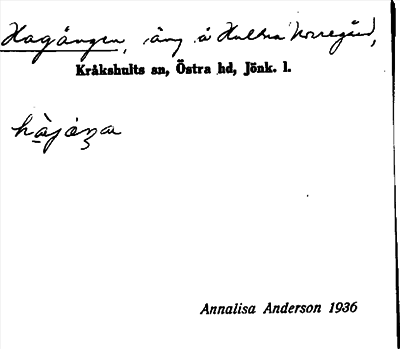 Hagången, äng å Hultna Norregård,
Kråkshults sn, Östra hd, Jönk. l.
Annalisa Anderson 1936